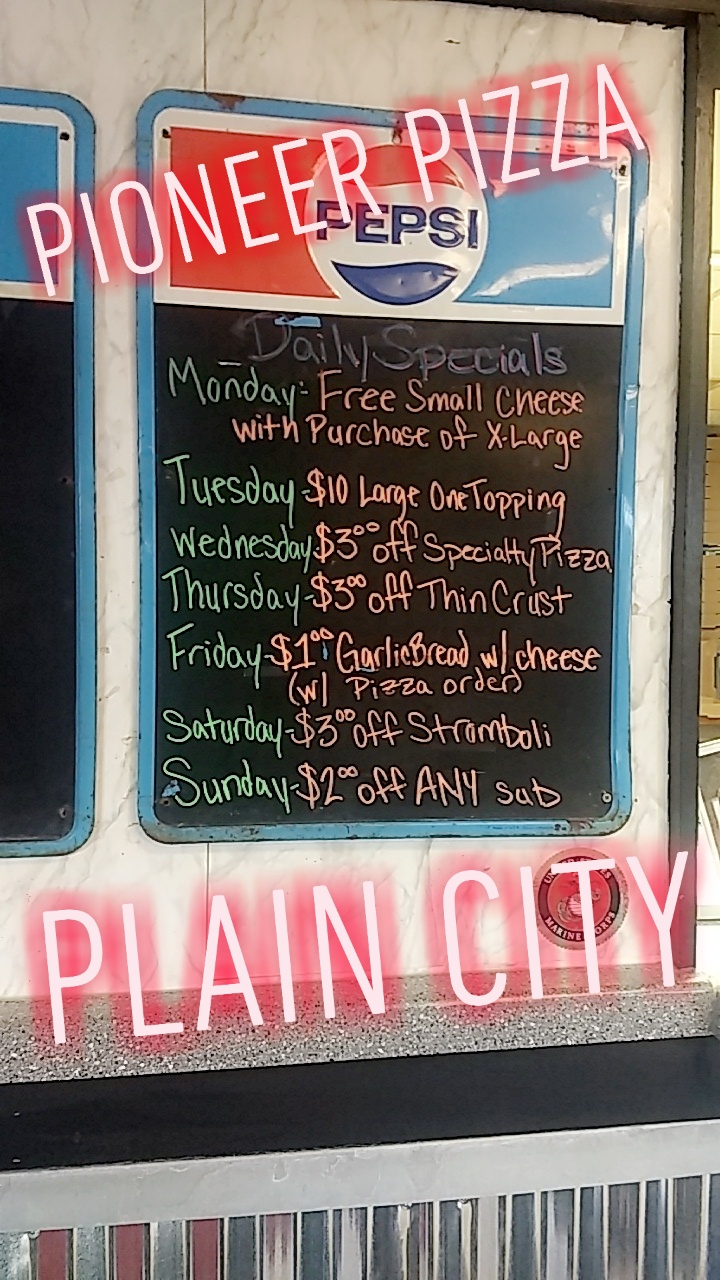 PIONEER PIZZA
PEPSI
Daily Specials
Monday- Free Small Cheese
with Purchase of X-Large
Tuesday-$10 Large One Topping
Wednesday-$3⁰⁰ off Specialty Pizza
Thursday-$3⁰⁰ off Thin Crust
Friday-$1⁰⁰ Garlic Bread w/ cheese
(w/ Pizza order)
Saturday-$3⁰⁰ off Stromboli
Sunday-$2⁰⁰ off ANY sub
UNITED STATES
MARINE CORPS
PLAIN CITY